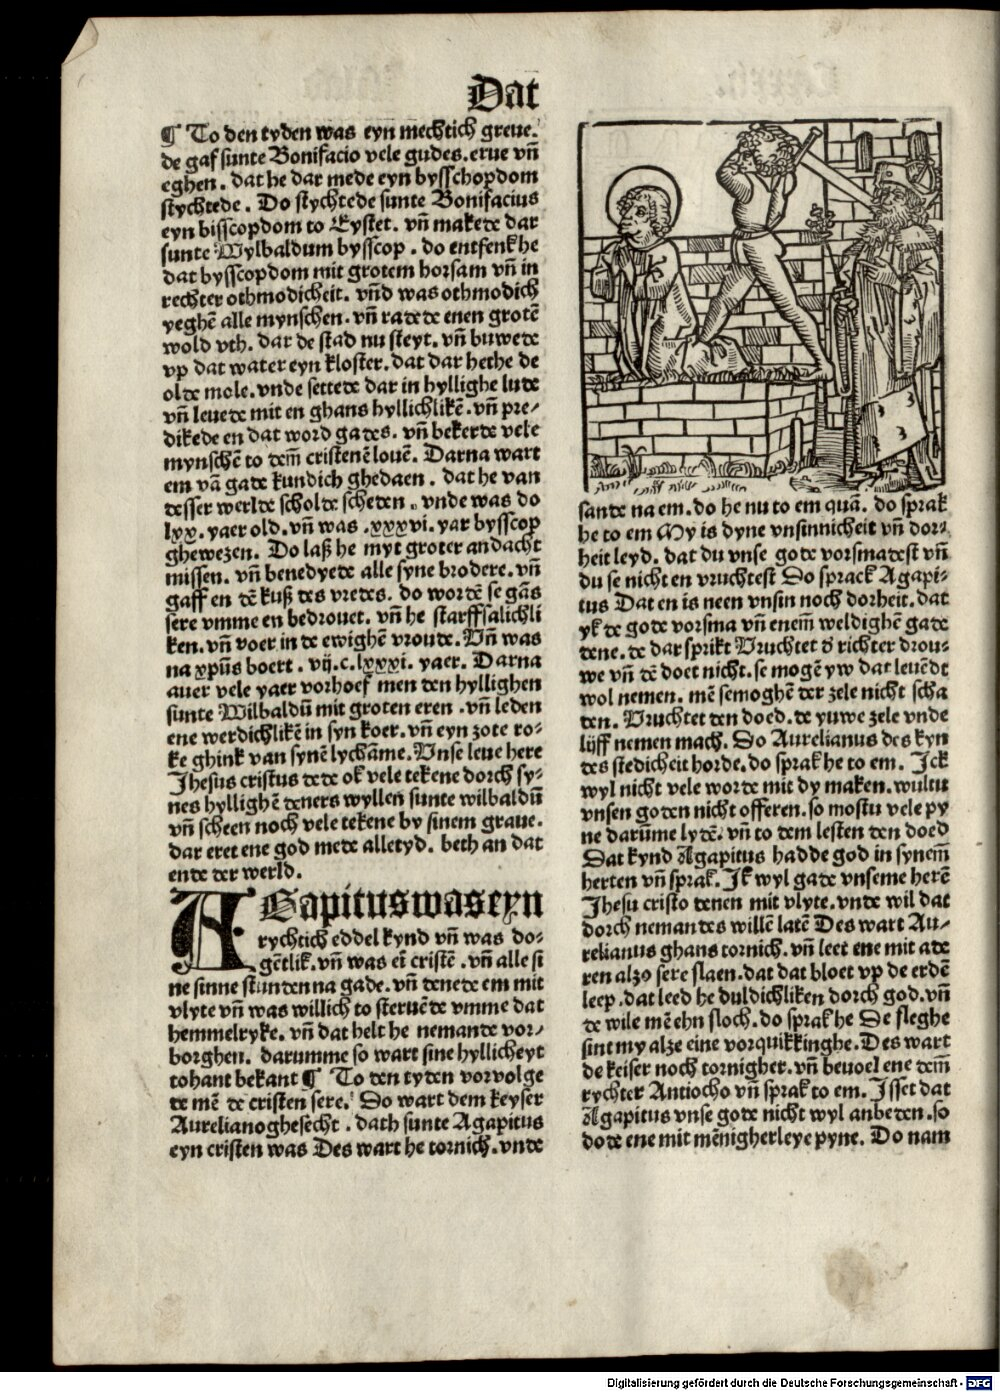 Dat
¶ To den tyden was eyn mechtich greue.
de gaf sunte Bonifacio vele gudes. erue vñ
eghen. dat he dar mede eyn bysschopdom
stychtede. Do stychtede sunte Bonifacius
eyn bisscopdom to Eystet. vñ makede dar
sunte Wylbaldum bysscop. do entfenk he
dat bysscopdom mit grotem horsam vñ in
rechter othmodicheit. vñd was othmodich
yeghē alle mynschen. vñ radede enen grotē
wold vth. dar de stad nu steyt. vñ buwede
vp dat water eyn kloster. dat dar hethe de
olde mole. vnde settede dar in hyllighe lude
vñ leuede mit en ghans hyllichlikē. vñ pre/
dikede en dat word gades. vñ bekerde vele
mynschē to dem̄ cristenē louē. Darna wart
em vā gade kundich ghedaen. dat he van
desser werlde scholde scheden. vnde was do
lxx. yaer old. vñ was .xxxvi. yar bysscop
ghewezen. Do laß he myt groter andacht
missen. vñ benedyede alle syne brodere. vñ
gaff en dē kuß des vredes. do wordē se gās
sere vmme en bedrouet. vñ he starff salichli
ken. vñ voer in de ewighē vroude. Vñ was
na xp̄us boert. vij.c.lxxxi. yaer. Darna
auer vele yaer vorhoef men den hyllighen
sunte Wilbaldū mit groten eren. vñ leden
ene werdichlikē in syn koer. vñ eyn zote ro-
ke ghink van synē lychāme. Vnse leue here
Jhesus cristus dede ok vele tekene dorch sy-
nes hyllighē deners wyllen sunte wilbaldū
vñ scheen noch vele tekene by sinem graue.
dar eret ene god mede alletyd. beth an dat
ende der werld.
AGapitus was eyn
rychtich eddel kynd vñ was do-
gētlik. vñ was eī cristē. vñ alle si
ne sinne stunden na gade. vñ denede em mit
vlyte vñ was willich to steruēde vmme dat
hemmelryke. vñ dat helt he nemande vor/
borghen. darumme so wart sine hyllicheyt
tohant bekant ¶ To den tyden vorvolge
de mē de cristen sere. Do wart dem keyser
Aurelianoghesecht. dath sunte Agapitus
eyn cristen was Des wart he tornich. vnde
sande na em. do he nu to em quā. do sprak
he to em My is dyne vnsinnicheit vñ dor-
heit leyd. dat du vnse gode vorsmadest vñ
du se nicht en vruchtest Do sprack Agapi-
tus Dat en is neen vnsin noch dorheit. dat
yk de gode vorsma vñ enem̄ weldighē gade
dene. de dar sprikt Vruchtet d̕ richter drou-
we vñ dē doet nicht. se mogē yw dat leuēdt
wol nemen. mē se moghē der zele nicht scha
den. Vruchtet den doed. de yuwe zele vnde
lijff nemen mach. Do Aurelianus des kyn
des stedicheit horde. do sprak he to em. Ick
wyl nicht vele worde mit dy maken. wultu
vnsen goden nicht offeren. so mostu vele py
ne darūme lydē. vñ to dem lesten den doed
Dat kynd Agapitus hadde god in synem̄
herten vñ sprak. Jk wyl gade vnseme herē
Jhesu cristo denen mit vlyte. vnde wil dat
dorch nemandes willē latē Des wart Au/
relianus ghans tornich. vñ leet ene mit ade
ren alzo sere slaen. dat dat bloet vp de erdē
leep. dat leed he duldichliken dorch god. vñ
de wile mē ehn sloch. do sprak he De sleghe
sint my alze eine vorquikkinghe. Des wart
de keiser noch tornigher. vñ beuoel ene dem̄
rychter Antiocho vñ sprak to em. Jsset dat
Agapitus vnse gode nicht wyl anbeden. so
dode ene mit mēnigherleye pyne. Do nam
Digitalisierung gefördert durch die Deutsche Forschungsgemeinschaft - DFG